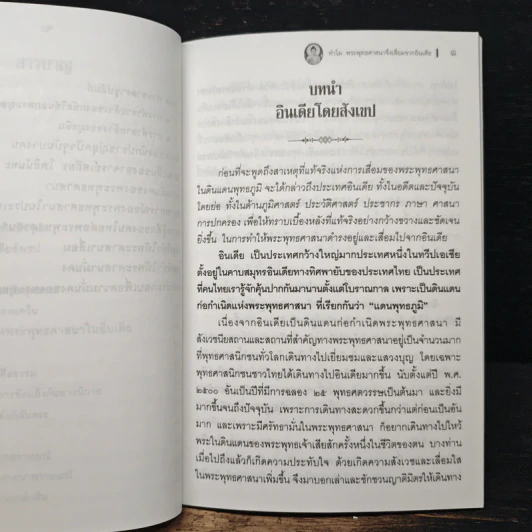 ทำไม พระพุทธศาสนาจึงเสื่อมจากอินเดีย ๑
บทนำ
อินเดียโดยสังเขป
ก่อนที่จะพูดถึงสาเหตุที่แท้จริงแห่งการเสื่อมของพระพุทธศาสนา
ในดินแดนพุทธภูมิ จะได้กล่าวถึงประเทศอินเดีย ทั้งในอดีตและปัจจุบัน
โดยย่อ ทั้งในด้านภูมิศาสตร์ ประวัติศาสตร์ ประชากร ภาษา ศาสนา
การปกครอง เพื่อให้ทราบเบื้องหลังที่แท้จริงอย่างกว้างขวางและชัดเจน
ยิ่งขึ้น ในการทำให้พระพุทธศาสนาดำรงอยู่และเสื่อมไปจากอินเดีย
อินเดีย เป็นประเทศกว้างใหญ่มากประเทศหนึ่งในทวีปเอเชีย
ตั้งอยู่ในคาบสมุทรอินเดียทางทิศพายัพของประเทศไทย เป็นประเทศ
ที่คนไทยเรารู้จักคุ้นปากกันมานานตั้งแต่โบราณกาล เพราะเป็นดินแดน
ก่อกำเนิดแห่งพระพุทธศาสนา ที่เรียกกันว่า “แดนพุทธภูมิ”
เนื่องจากอินเดียเป็นดินแดนก่อกำเนิดพระพุทธศาสนา มี
สังเวชนียสถานและสถานที่สำคัญทางพระพุทธศาสนาอยู่เป็นจำนวนมาก
ที่พุทธศาสนิกชนทั่วโลกเดินทางไปเยี่ยมชมและแสวงบุญ โดยเฉพาะ
พุทธศาสนิกชนชาวไทยได้เดินทางไปอินเดียมากขึ้น นับตั้งแต่ปี พ.ศ.
๒๕๐๐ อันเป็นปีที่มีการฉลอง ๒๕ พุทธศตวรรษเป็นต้นมา และยิ่งมี
มากขึ้นจนถึงปัจจุบัน เพราะการเดินทางสะดวกขึ้นกว่าแต่ก่อนเป็นอัน
มาก และเพราะมีศรัทธามั่นในพระพุทธศาสนา ก็อยากเดินทางไปไหว้
พระในดินแดนของพระพุทธเจ้าเสียสักครั้งหนึ่งในชีวิตของตน บางท่าน
เมื่อไปถึงแล้วก็เกิดความประทับใจ ด้วยเกิดความสังเวชและเลื่อมใส
ในพระพุทธศาสนาเพิ่มขึ้น จึงมาบอกเล่าและชักชวนญาติมิตรให้เดินทาง